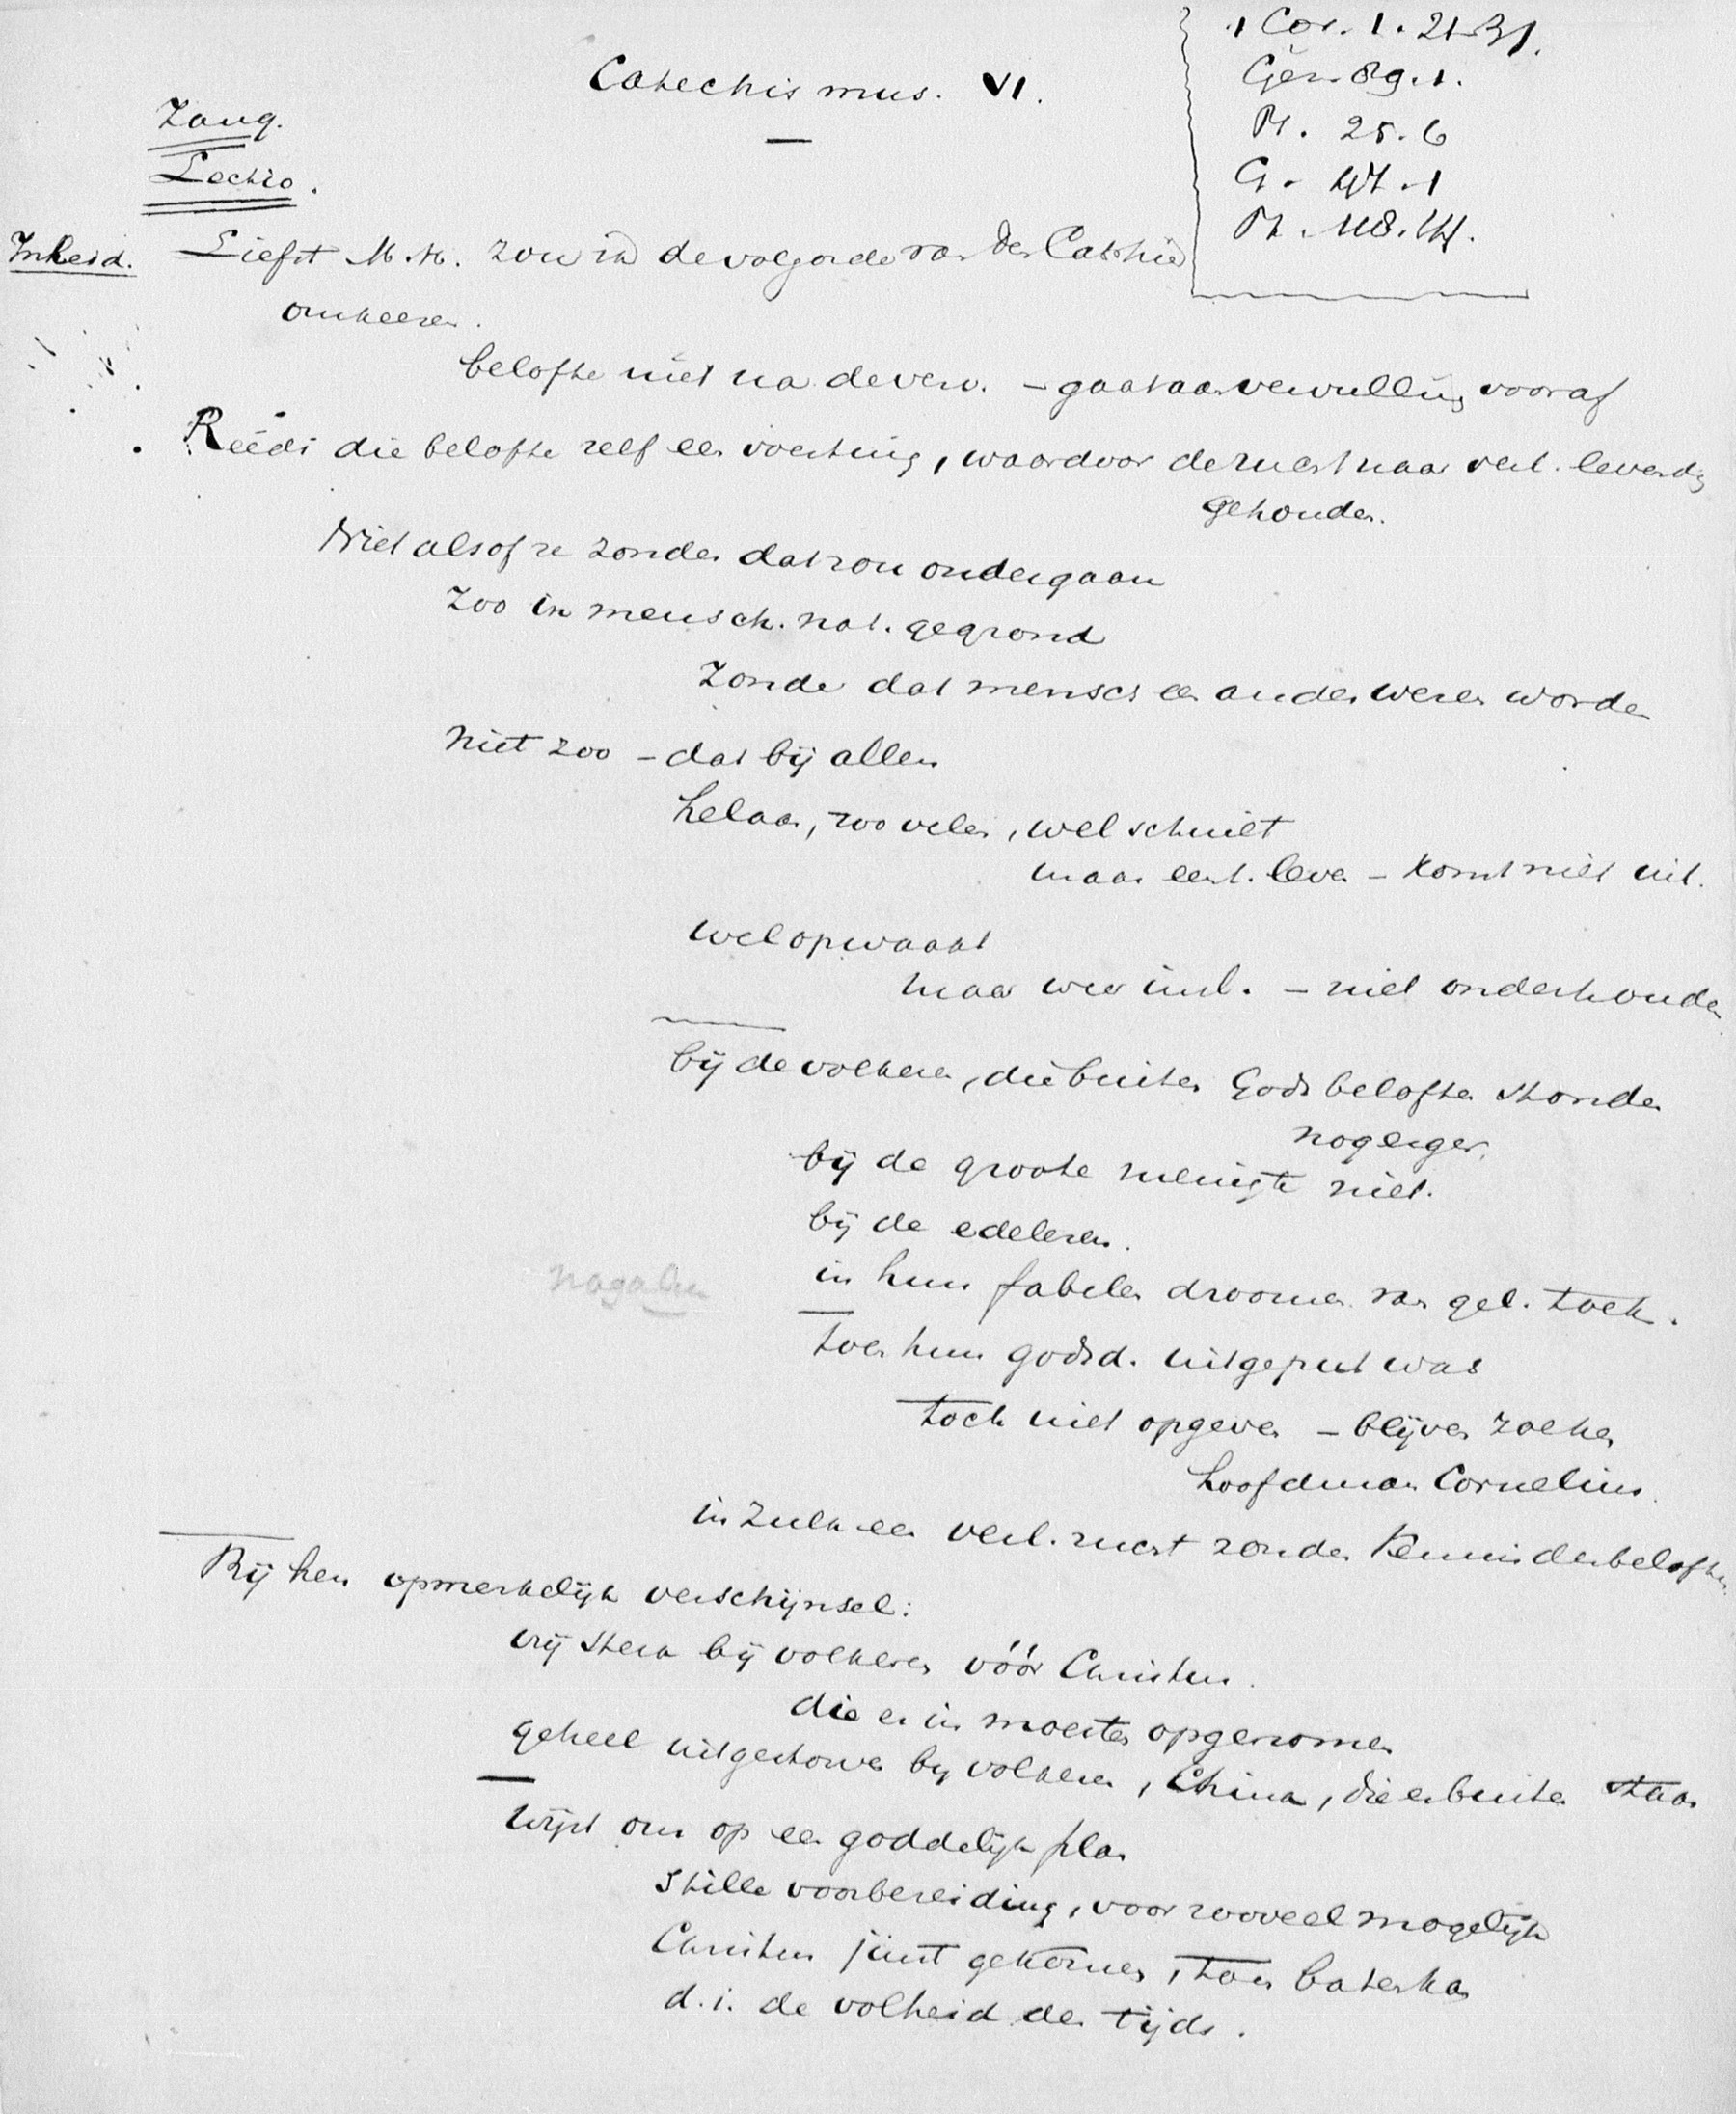 Catechismus. VI.
1 Cor. 1. 21-31.
Gez. 89.1.
Ps. 25.6
G. 47.1
Ps. 118.14.
Zang.
Lectio.
Inleid. Liefst M.H. zou ik de volgorde van den Catechis
omkeeren.
belofte niet na de verv. - gaat aan vervulling vooraf
Reeds die belofte zelf een troosting, waardoor de zucht naar verl. levendig
gehouden.
Niet alsof ze zonder dat zou ondergaan
Zoo in mensch. nat. gegrond
Zonder dat mensch een ander wezen worden
Niet zoo - dat bij allen
helaas, zoo velen, wel schuilt
maar eerst. leven - komt niet uit.
wel opwaakt
maar weer insl. - niet onderhouden
bij de volkeren, die buiten Gods beloften stonden
nog erger.
bij de groote menigte niet.
bij de edeleren.
in hun fabelen droomen van gel. toek.
toen hun godsd. uitgeput was
toch niet opgeven - blijven zoeken
hoofdman Cornelius.
in zulk een verl. zucht zonder kennis der beloften
Bij hen opmerkelijk verschijnsel:
vrij sterk bij volkeren vóór Christus.
die er in moesten opgenomen
geheel uitgestorven bij volkeren, China, die er buiten staan
Wijst ons op een goddelijk plan
Stille voorbereiding, voor zooveel mogelijk
Christus juist gekomen, toen baten kon
d.i. de volheid des tijds.